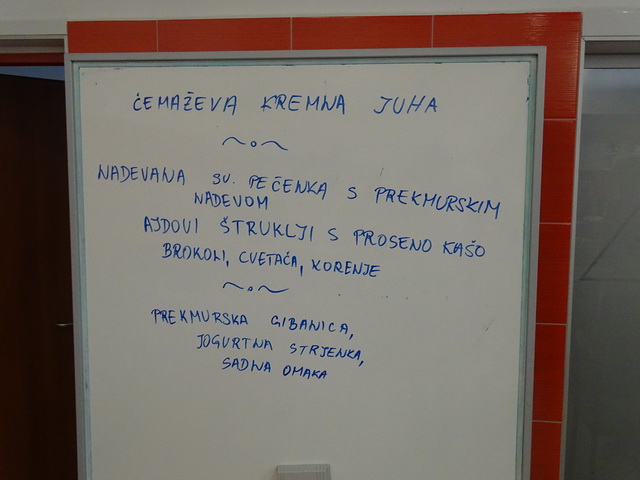 ČEMAŽEVA KREMNA JUHA
NADEVANA SV. PEČENKA S PREKMURSKIM
NADEVOM
AJDOVI ŠTRUKLJI S PROSENO KAŠO
BROKOLI, CVETAČA, KORENJE
PREKMURSKA GIBANICA,
JOGURTNA STRJENKA,
SADNA OMAKA